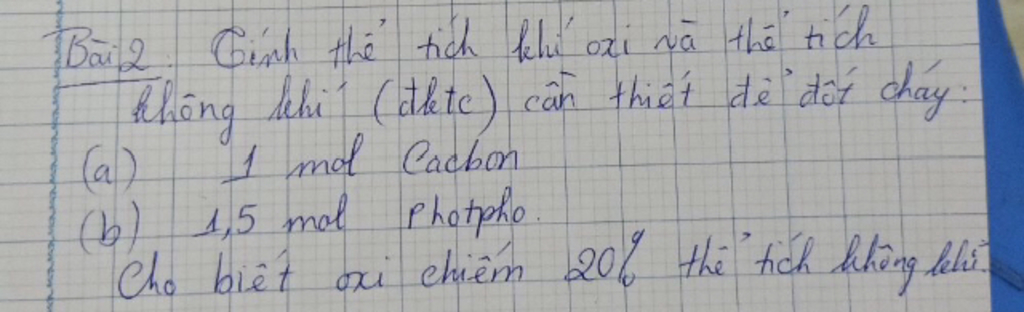 Bài 2. Tính thể tích khí oxi và thể tích
không khí (đktc) cần thiết để đốt cháy:
(a) 1 mol Cacbon
(b) 1,5 mol Photpho.
Cho biết oxi chiếm 20% thể tích không khí.